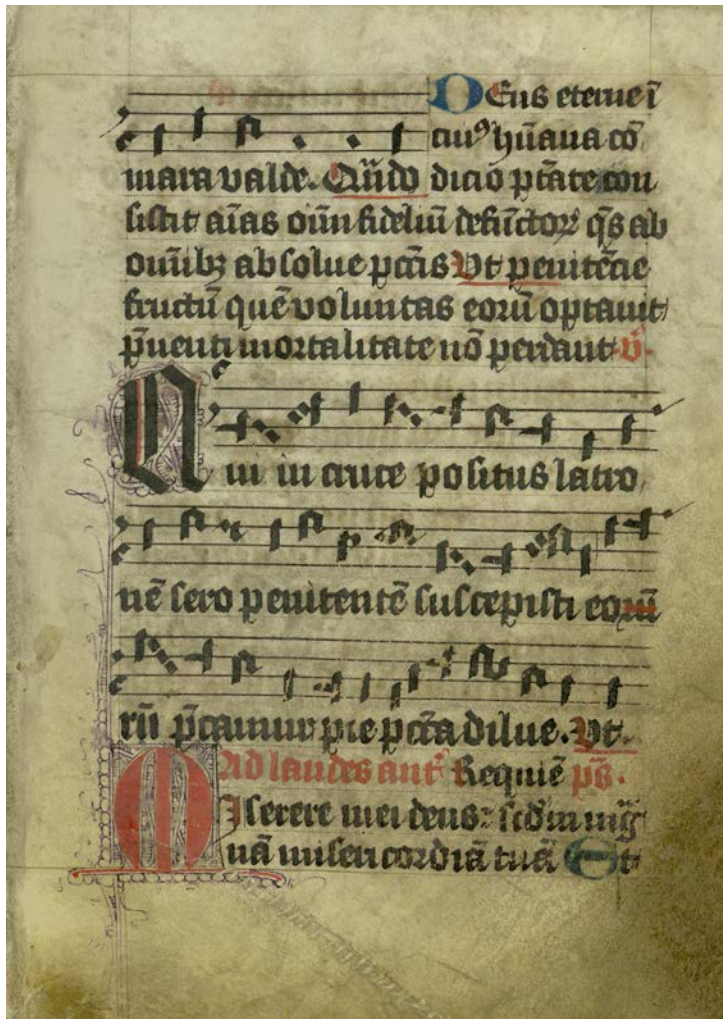 Deus eterne ī
cui⁹ hūana cō
mara valde. Qn̄do dicio p̄tate con
sistit aīas oīm fideliū defūctoꝝ q̄s ab
om̄ibꝫ absolue pctīs Ut penitēcie
fructū quē voluntas eorū optauit
p̄uenti mortalitate nō perdant v̄.
Qui in cruce positus latro
nē sero penitentē suscepisti eo
rū p̄camur pie pctā dilue. Ut.
Ad laudes ant̄ Requiē pš.
Miserere mei deus: scd̄m mḡ
nā misericordiā tuā Et